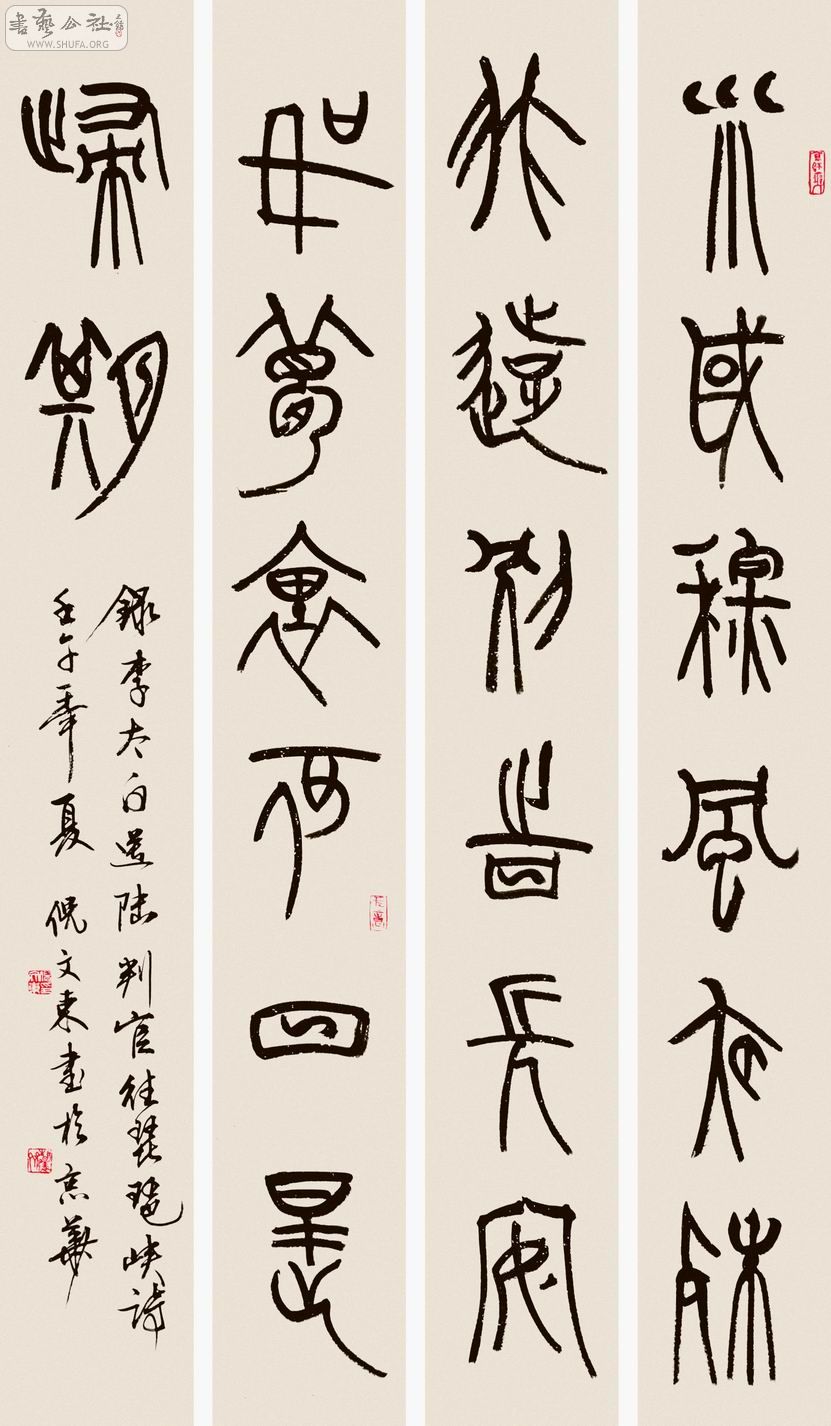 書藝公社
WWW.SHUFA.ORG
水國秋風夜殊
非遠別時長安
如夢裏何日是
歸期
錄李太白送陸判官往琵琶峽詩
壬午年夏 倪文東書於京華